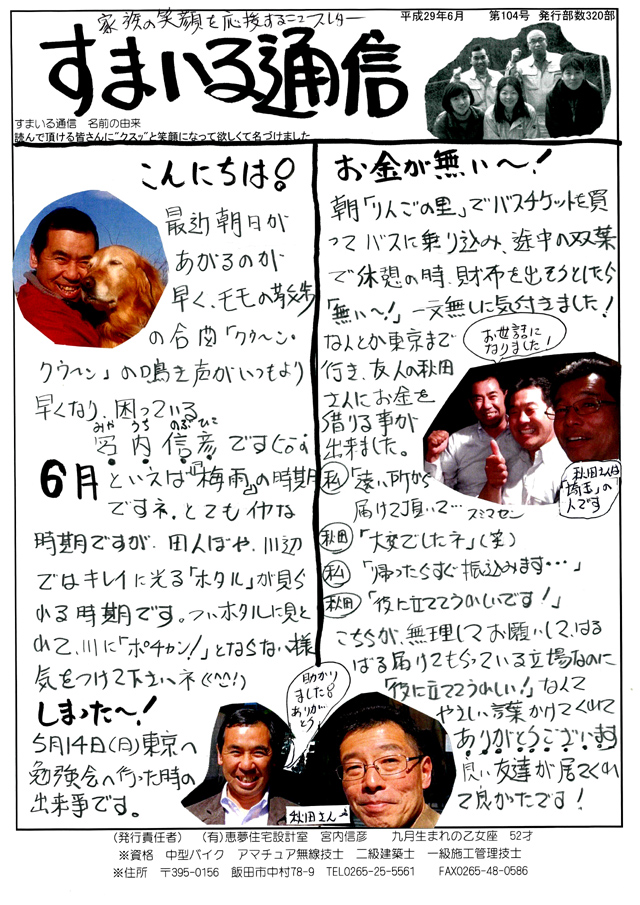 家族の笑顔を応援するニュースレター
平成29年6月 第104号 発行部数320部
すまいる通信
すまいる通信 名前の由来
読んで頂ける皆さんに"クスッ"と笑顔になって欲しくて名づけました
こんにちは!
最近朝日が
あがるのが
早く、モモの散歩
の合図「クゥ〜ン・
クゥ〜ン」の鳴き声がいつもより
早くなり、困っている
みや うち のぶ ひこ
宮内信彦です
6月といえば『梅雨』の時期
ですネ。とてもイヤな
時期ですが、田んぼや、川辺
ではキレイに光る「ホタル」が見ら
れる時期です。ついホタルに見と
れて、川に「ポチャン!」とならない様
気をつけて下さいネ(^^!)
しまった〜!
5月14日(日)東京へ
勉強会へ行った時の
出来事です。
お金が無い〜!
朝「りんごの里」でバスチケットを買
って バスに乗り込み、途中の双葉
で休憩の時、財布を出そうとしたら
「無い〜!」一文無しに気付きました!
なんとか東京まで
行き、友人の秋田
さんにお金を
借りる事が
出来ました。
お世話に
なりました!
秋田さんは
「埼玉」の
人です
私「遠い所から
届けて頂いて…
スミマセン
秋田「大変でしたネ」(笑)
私「帰ったらすぐ振込みます・・・」
秋田「役に立ててうれしいです!」
こちらが、無理してお願いして、はる
ばる届けてもらっている立場なのに
「役に立ててうれしい!」なんて
やさしい言葉かけてくれて
ありがとうございます
良い友達が居てくれ
て良かったです!
助かり
ました!
ありがとう
秋田さん
(発行責任者) (有)恵夢住宅設計室 宮内信彦 九月生まれの乙女座 52才
※資格 中型バイク アマチュア無線技士 二級建築士 一級施工管理技士
※住所 〒395-0156 飯田市中村78-9 TEL0265-25-5561 FAX0265-48-0586